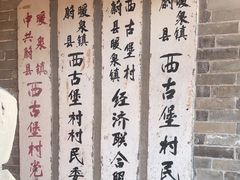 中共蔚县暖泉镇西古堡村党
蔚县暖泉镇西古堡村村民委
蔚县暖泉镇西古堡村经济联合
蔚县暖泉镇西古堡村民